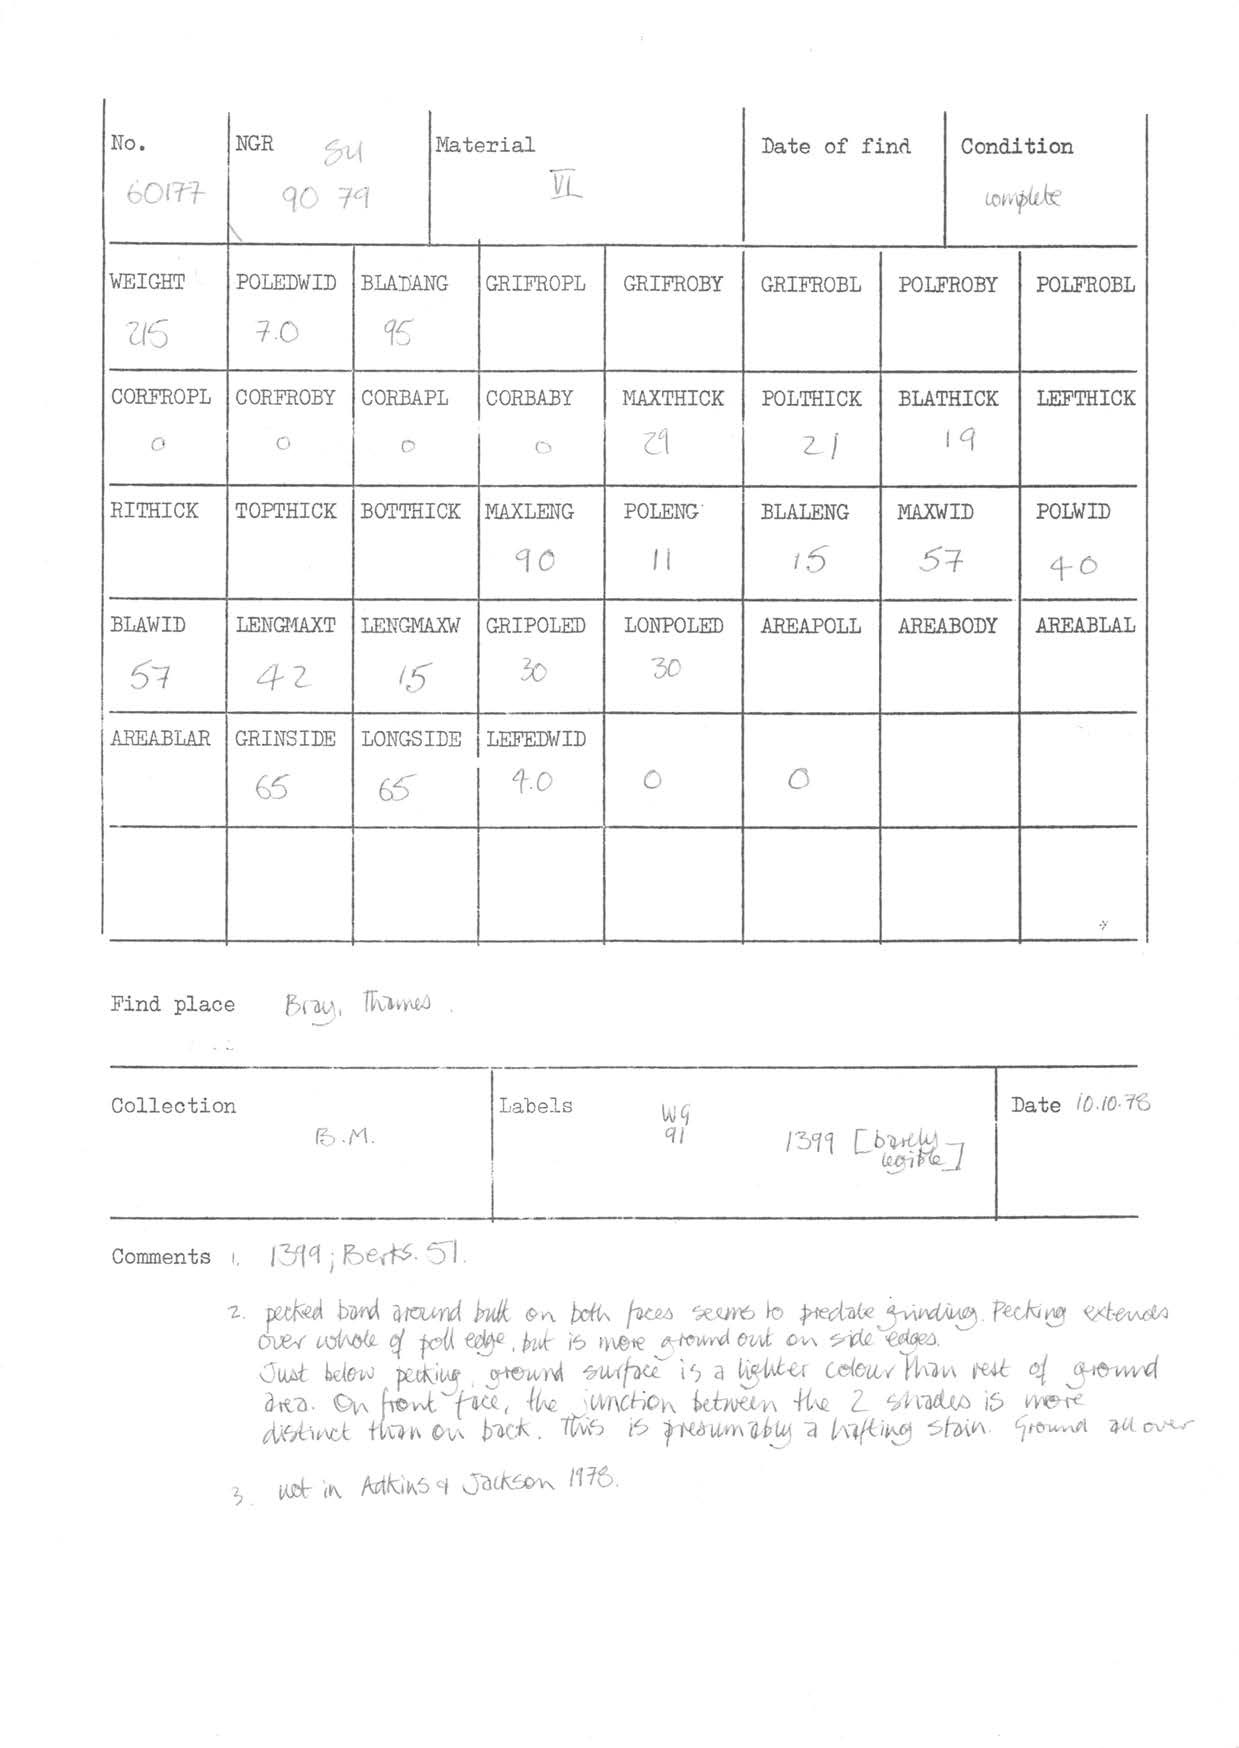 No. NGR SU Material Date of find Condition
60177 90 79 VI complete
WEIGHT POLEDWID BLADANG GRIFROPL GRIFROBY GRIFROBL POLFROBY POLFROBL
215 7.0 95
CORFROPL CORFROBY CORBAPL CORBABY MAXTHICK POLTHICK BLATHICK LEFTHICK
0 0 0 0 29 21 19
RITHICK TOPTHICK BOTTHICK MAXLENG POLENG BLALENG MAXWID POLWID
90 11 15 57 40
BLAWID LENGMAXT LENGMAXW GRIPOLED LONPOLED AREAPOLL AREABODY AREABLAL
57 42 15 30 30
AREABLAR GRINSIDE LONGSIDE LEFEDWID
65 65 4.0 0 0
Find place Bray, Thames.
Collection Labels WG Date 10.10.78
B.M. 91 1399 [barely
legible]
Comments 1. 1399; Berks. 51.
2. pecked band around butt on both faces seems to predate grinding. Pecking extends
over whole of poll edge, but is more ground out on side edges.
Just below pecking, ground surface is a lighter colour than rest of ground
area. On front face, the junction between the 2 shades is more
distinct than on back. This is presumably a hafting stain. Ground all over
3. not in Adkins & Jackson 1978.